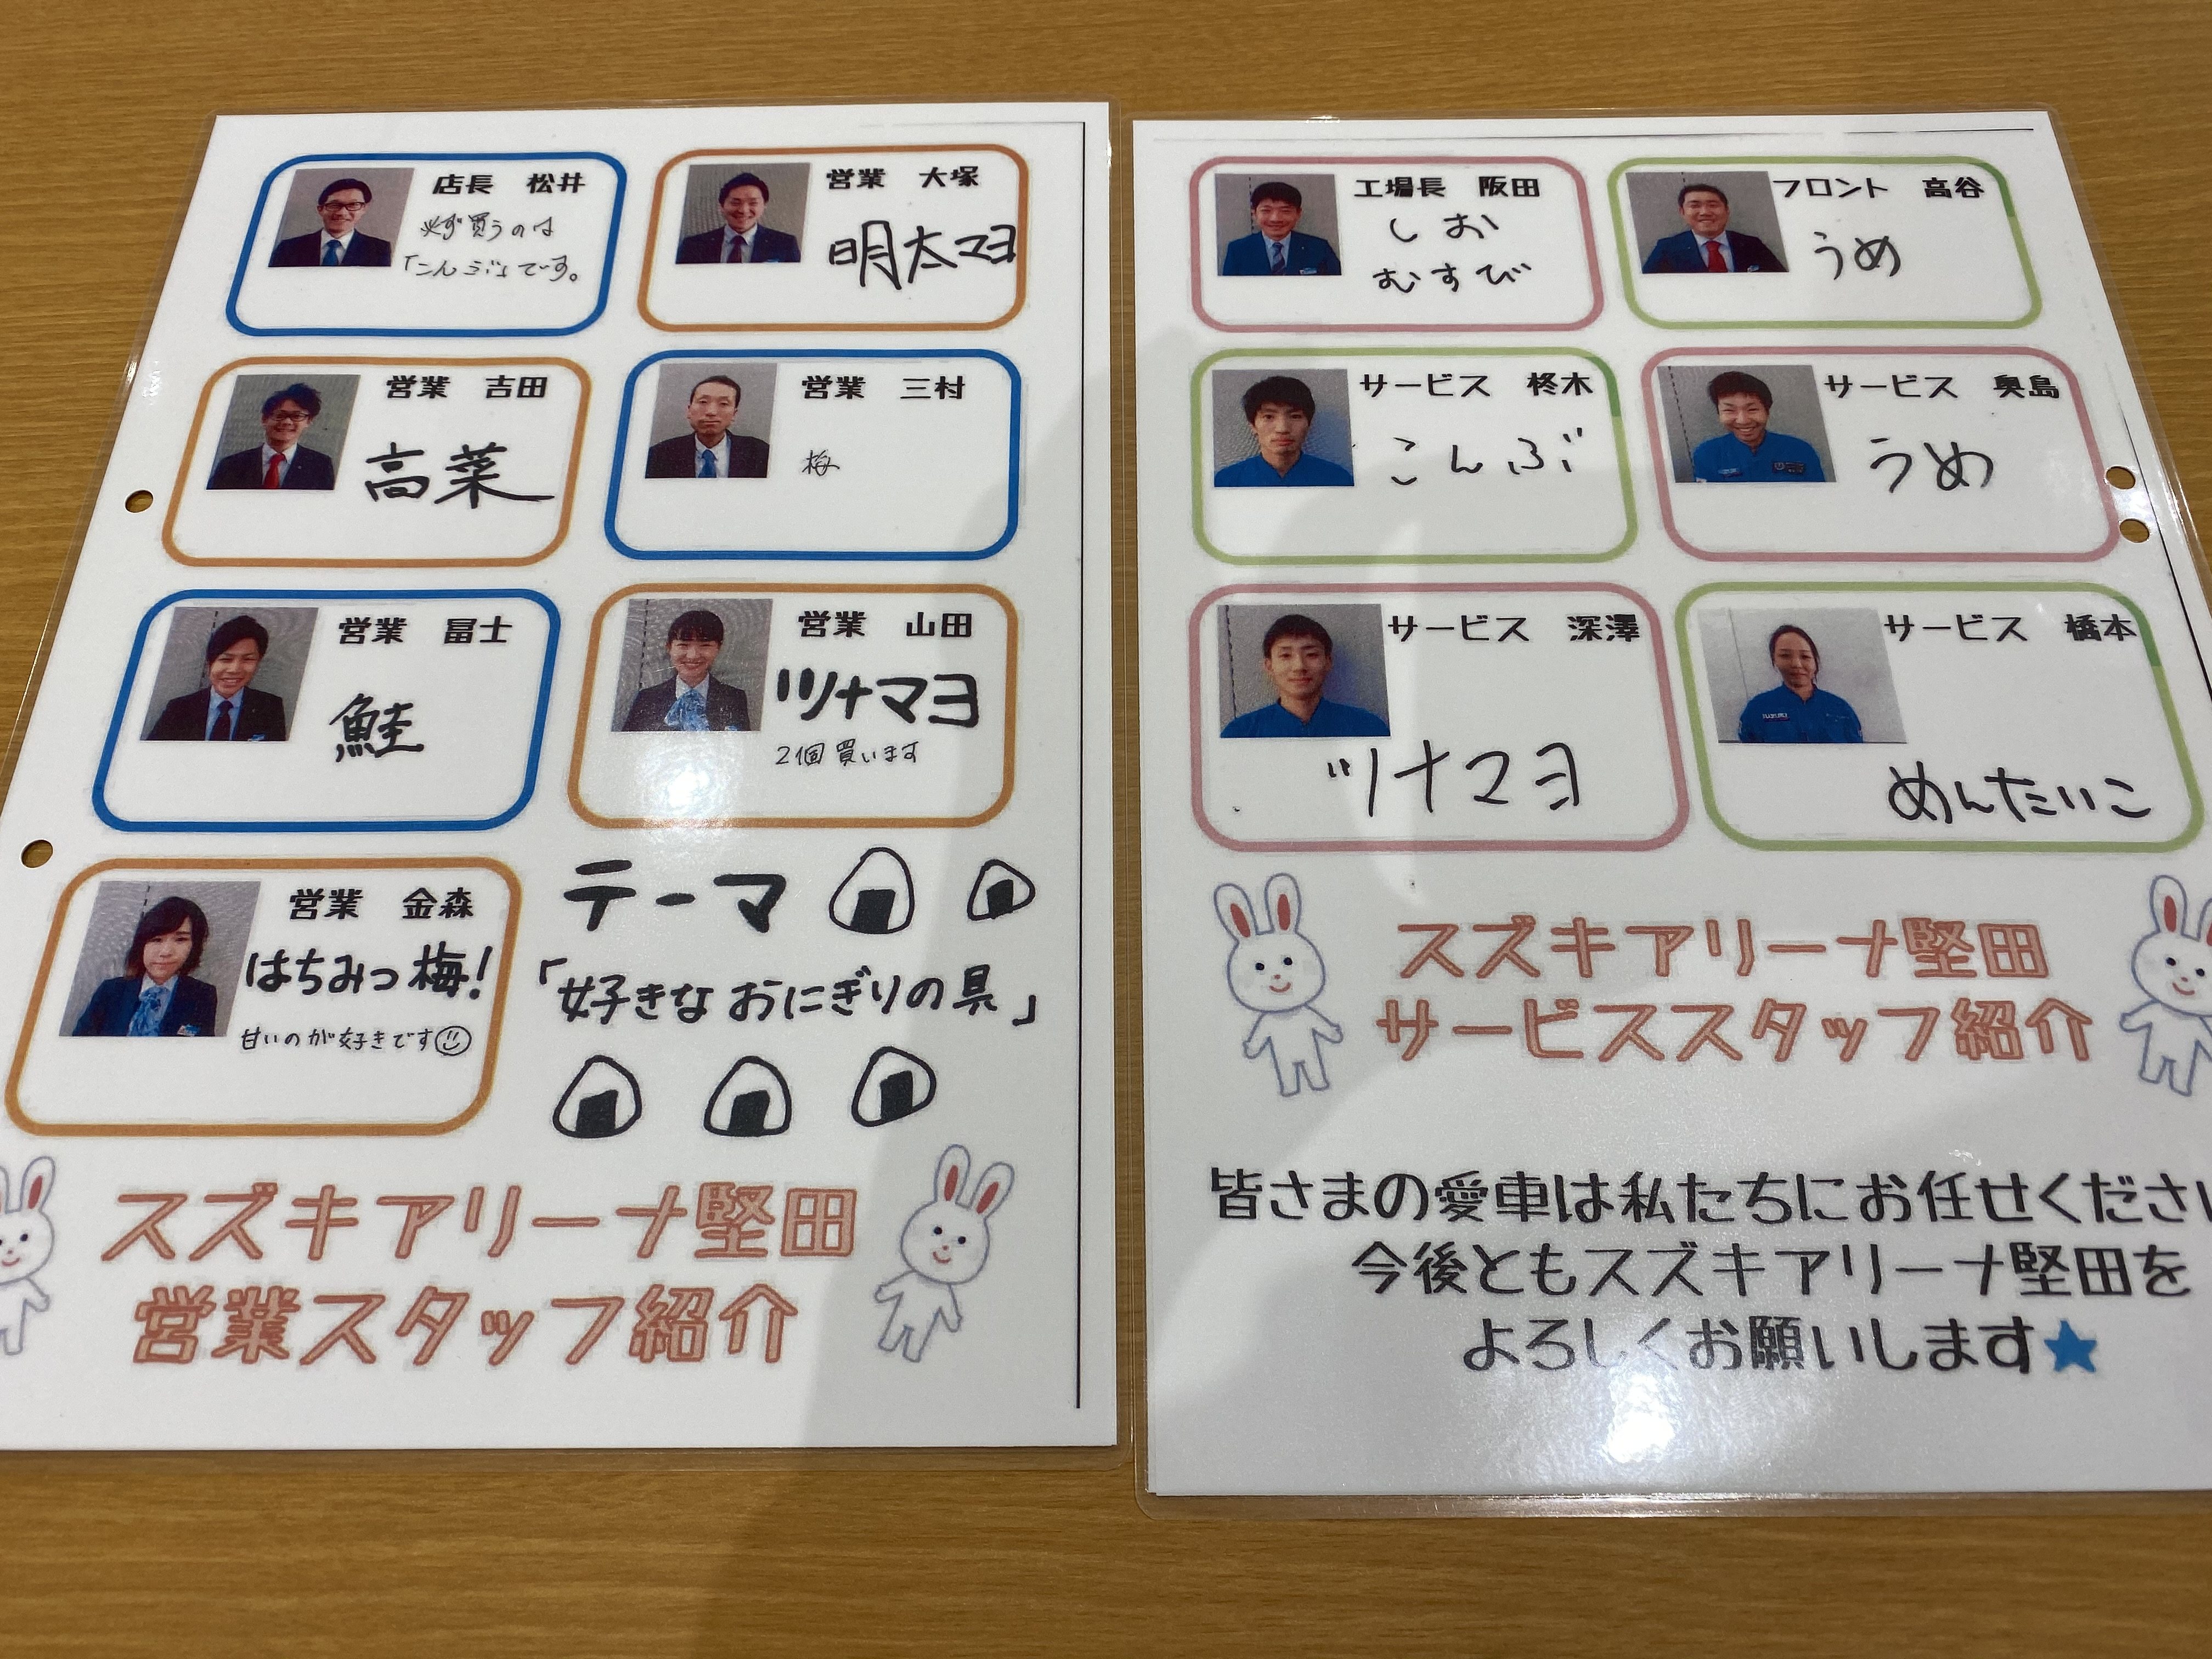 店長 松井
必ず買うのは
「こんぶ」です。
営業 大塚
明太マヨ
営業 吉田
高菜
営業 三村
梅
営業 冨士
鮭
営業 山田
ツナマヨ
2個買います
営業 金森
はちみつ梅!
甘いのが好きです
テーマ
「好きなおにぎりの具」
スズキアリーナ堅田
営業スタッフ紹介
工場長 阪田
しお
むすび
フロント 高谷
うめ
サービス 柊木
こんぶ
サービス 奥島
うめ
サービス 深澤
ツナマヨ
サービス 橋本
めんたいこ
スズキアリーナ堅田
サービススタッフ紹介
皆さまの愛車は私たちにお任せくださ
今後ともスズキアリーナ堅田を
よろしくお願いします★